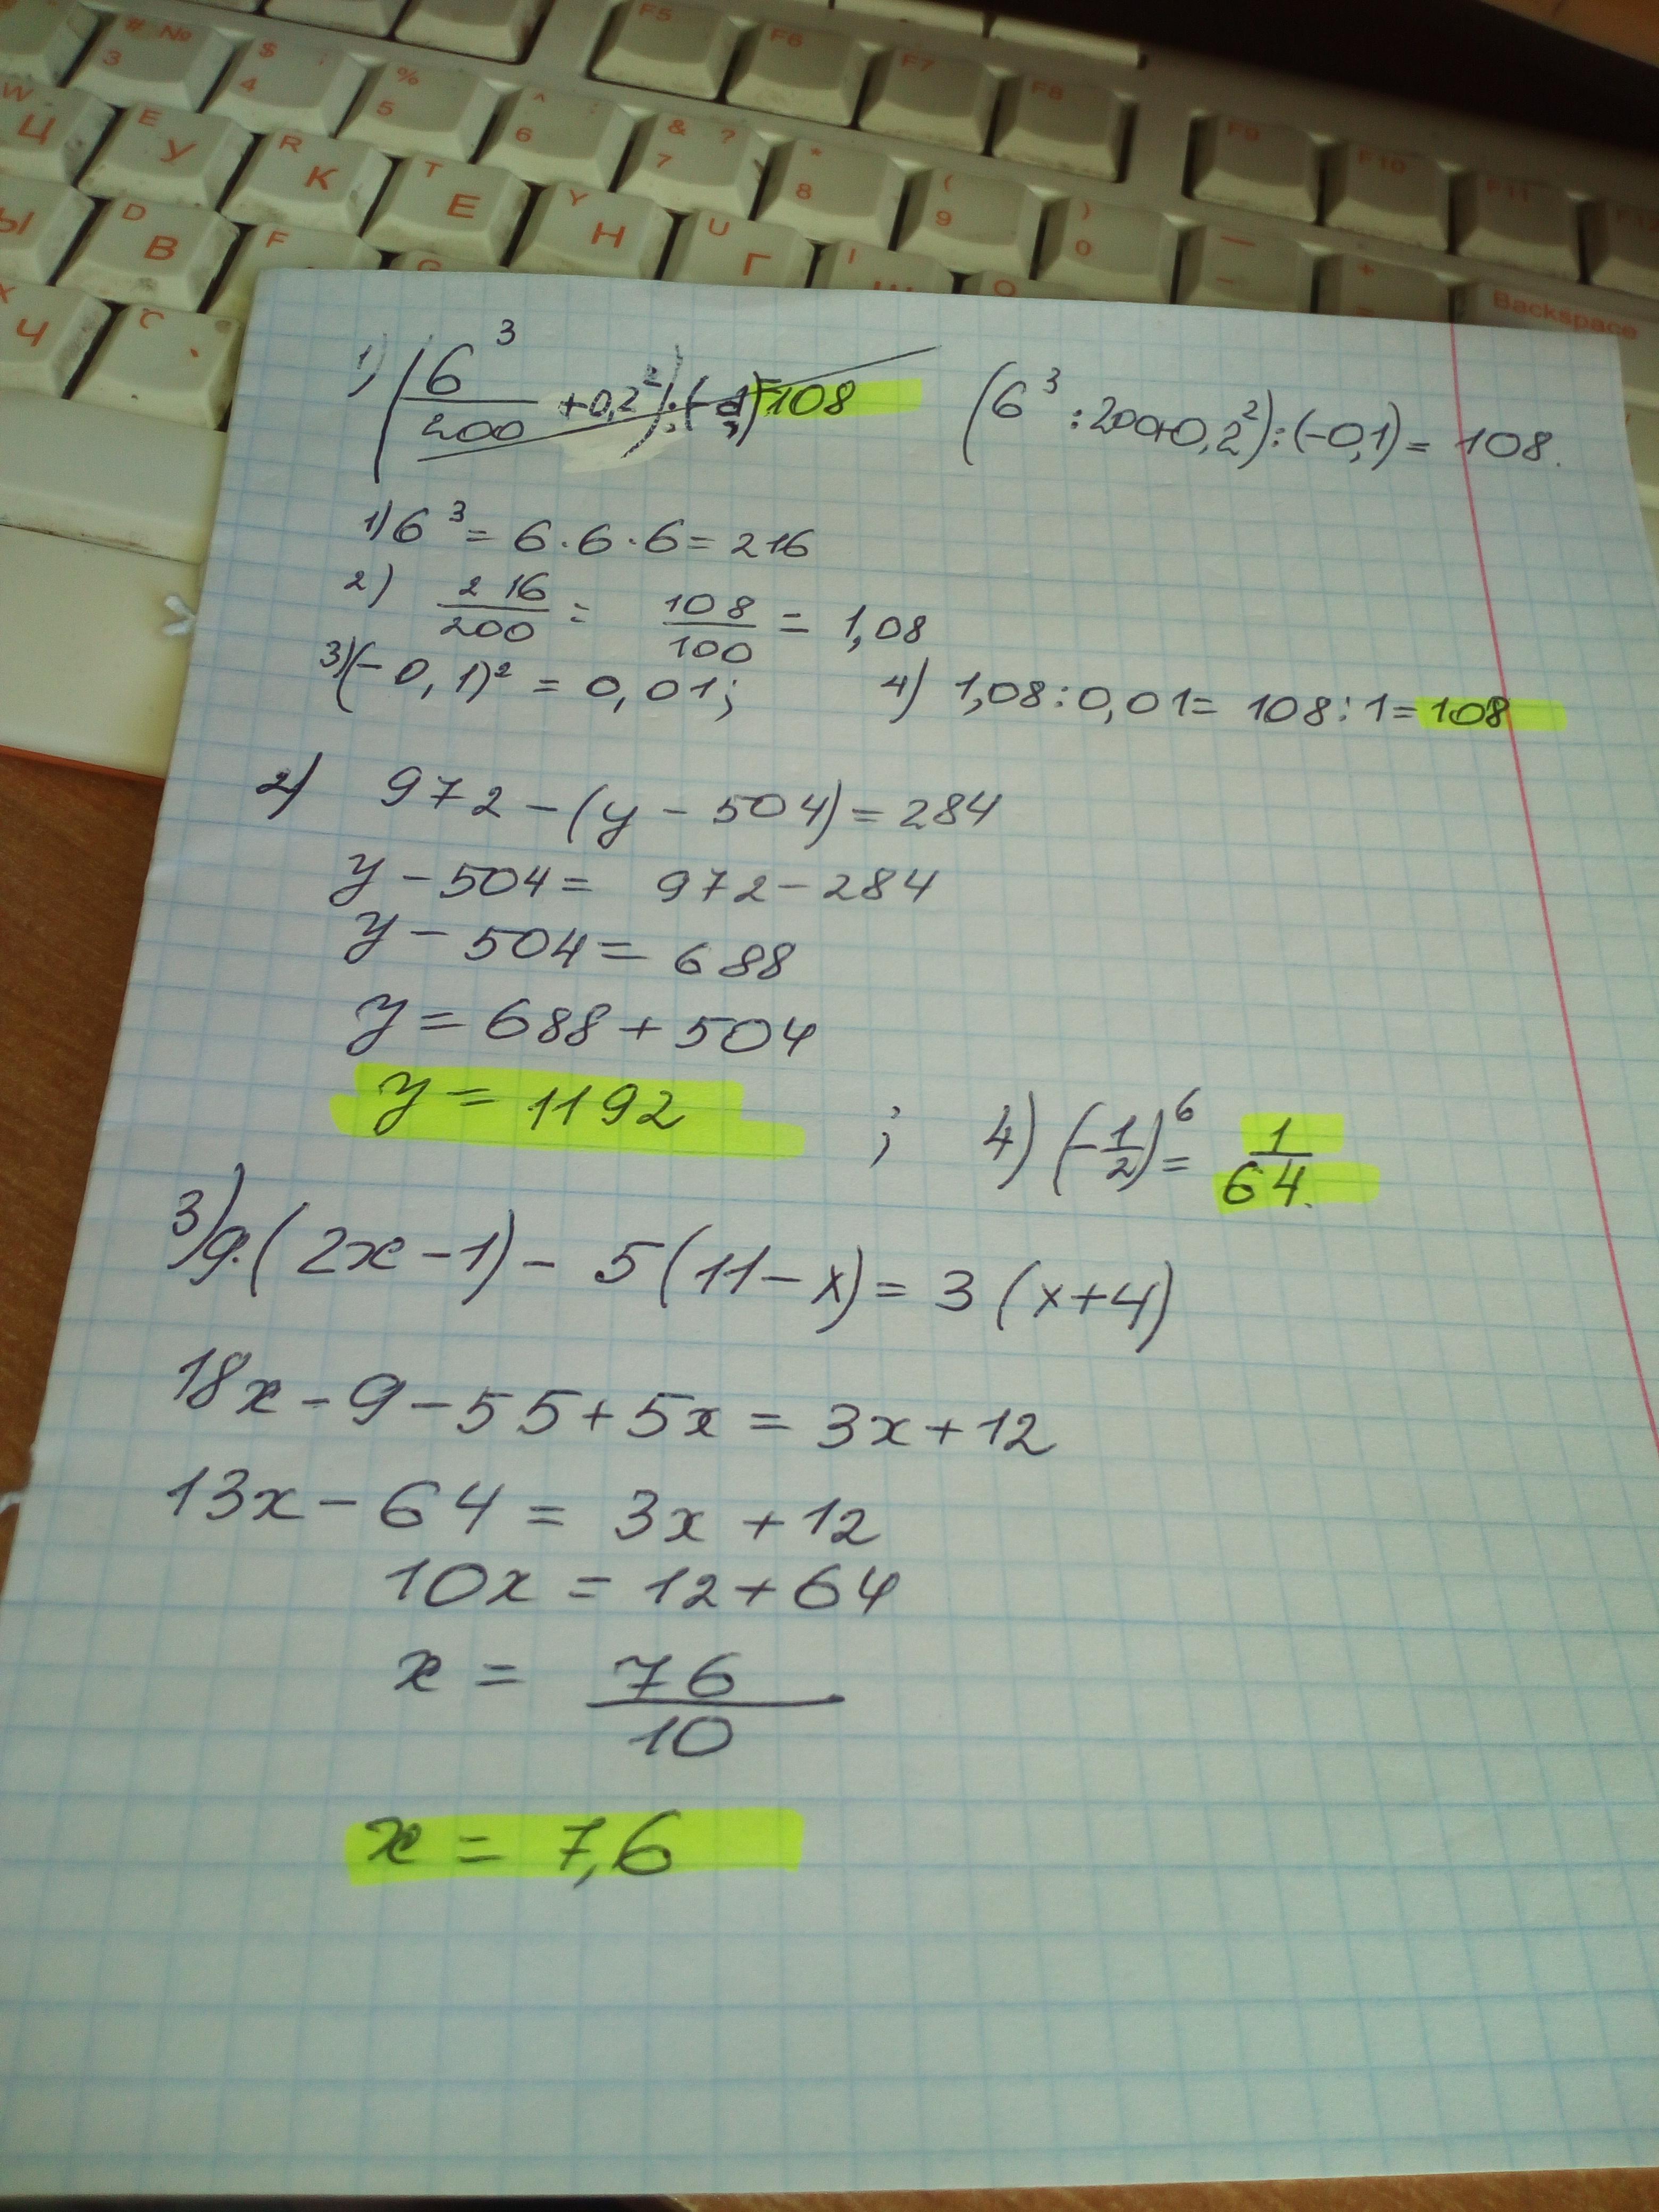 F5 F6 F7 F8 F9 F10 F11
# № 3 $ ; 4 % : 5 ^ 6 & ? 7 * 8 ( 9 ) 0 — - + =
Backspace
W Ц E У R К T Е Y Н U Г I Ш O
Ы D В F
Ч С
1) (6³/200 + 0,2²) : (-0,1) = 108
(6³ : 200+0,2²) : (-0,1) = 108.
1) 6³ = 6 · 6 · 6 = 216
2) 216/200 = 108/100 = 1,08
3) (-0,1)² = 0,01; 4) 1,08 : 0,01 = 108 : 1 = 108
2) 972 - (y - 504) = 284
y - 504 = 972 - 284
y - 504 = 688
y = 688 + 504
y = 1192 ; 4) (-1/2)⁶ = 1/64.
3) 9·(2x - 1) - 5(11 - x) = 3(x+4)
18x - 9 - 55 + 5x = 3x + 12
13x - 64 = 3x + 12
10x = 12 + 64
x = 76/10
x = 7,6